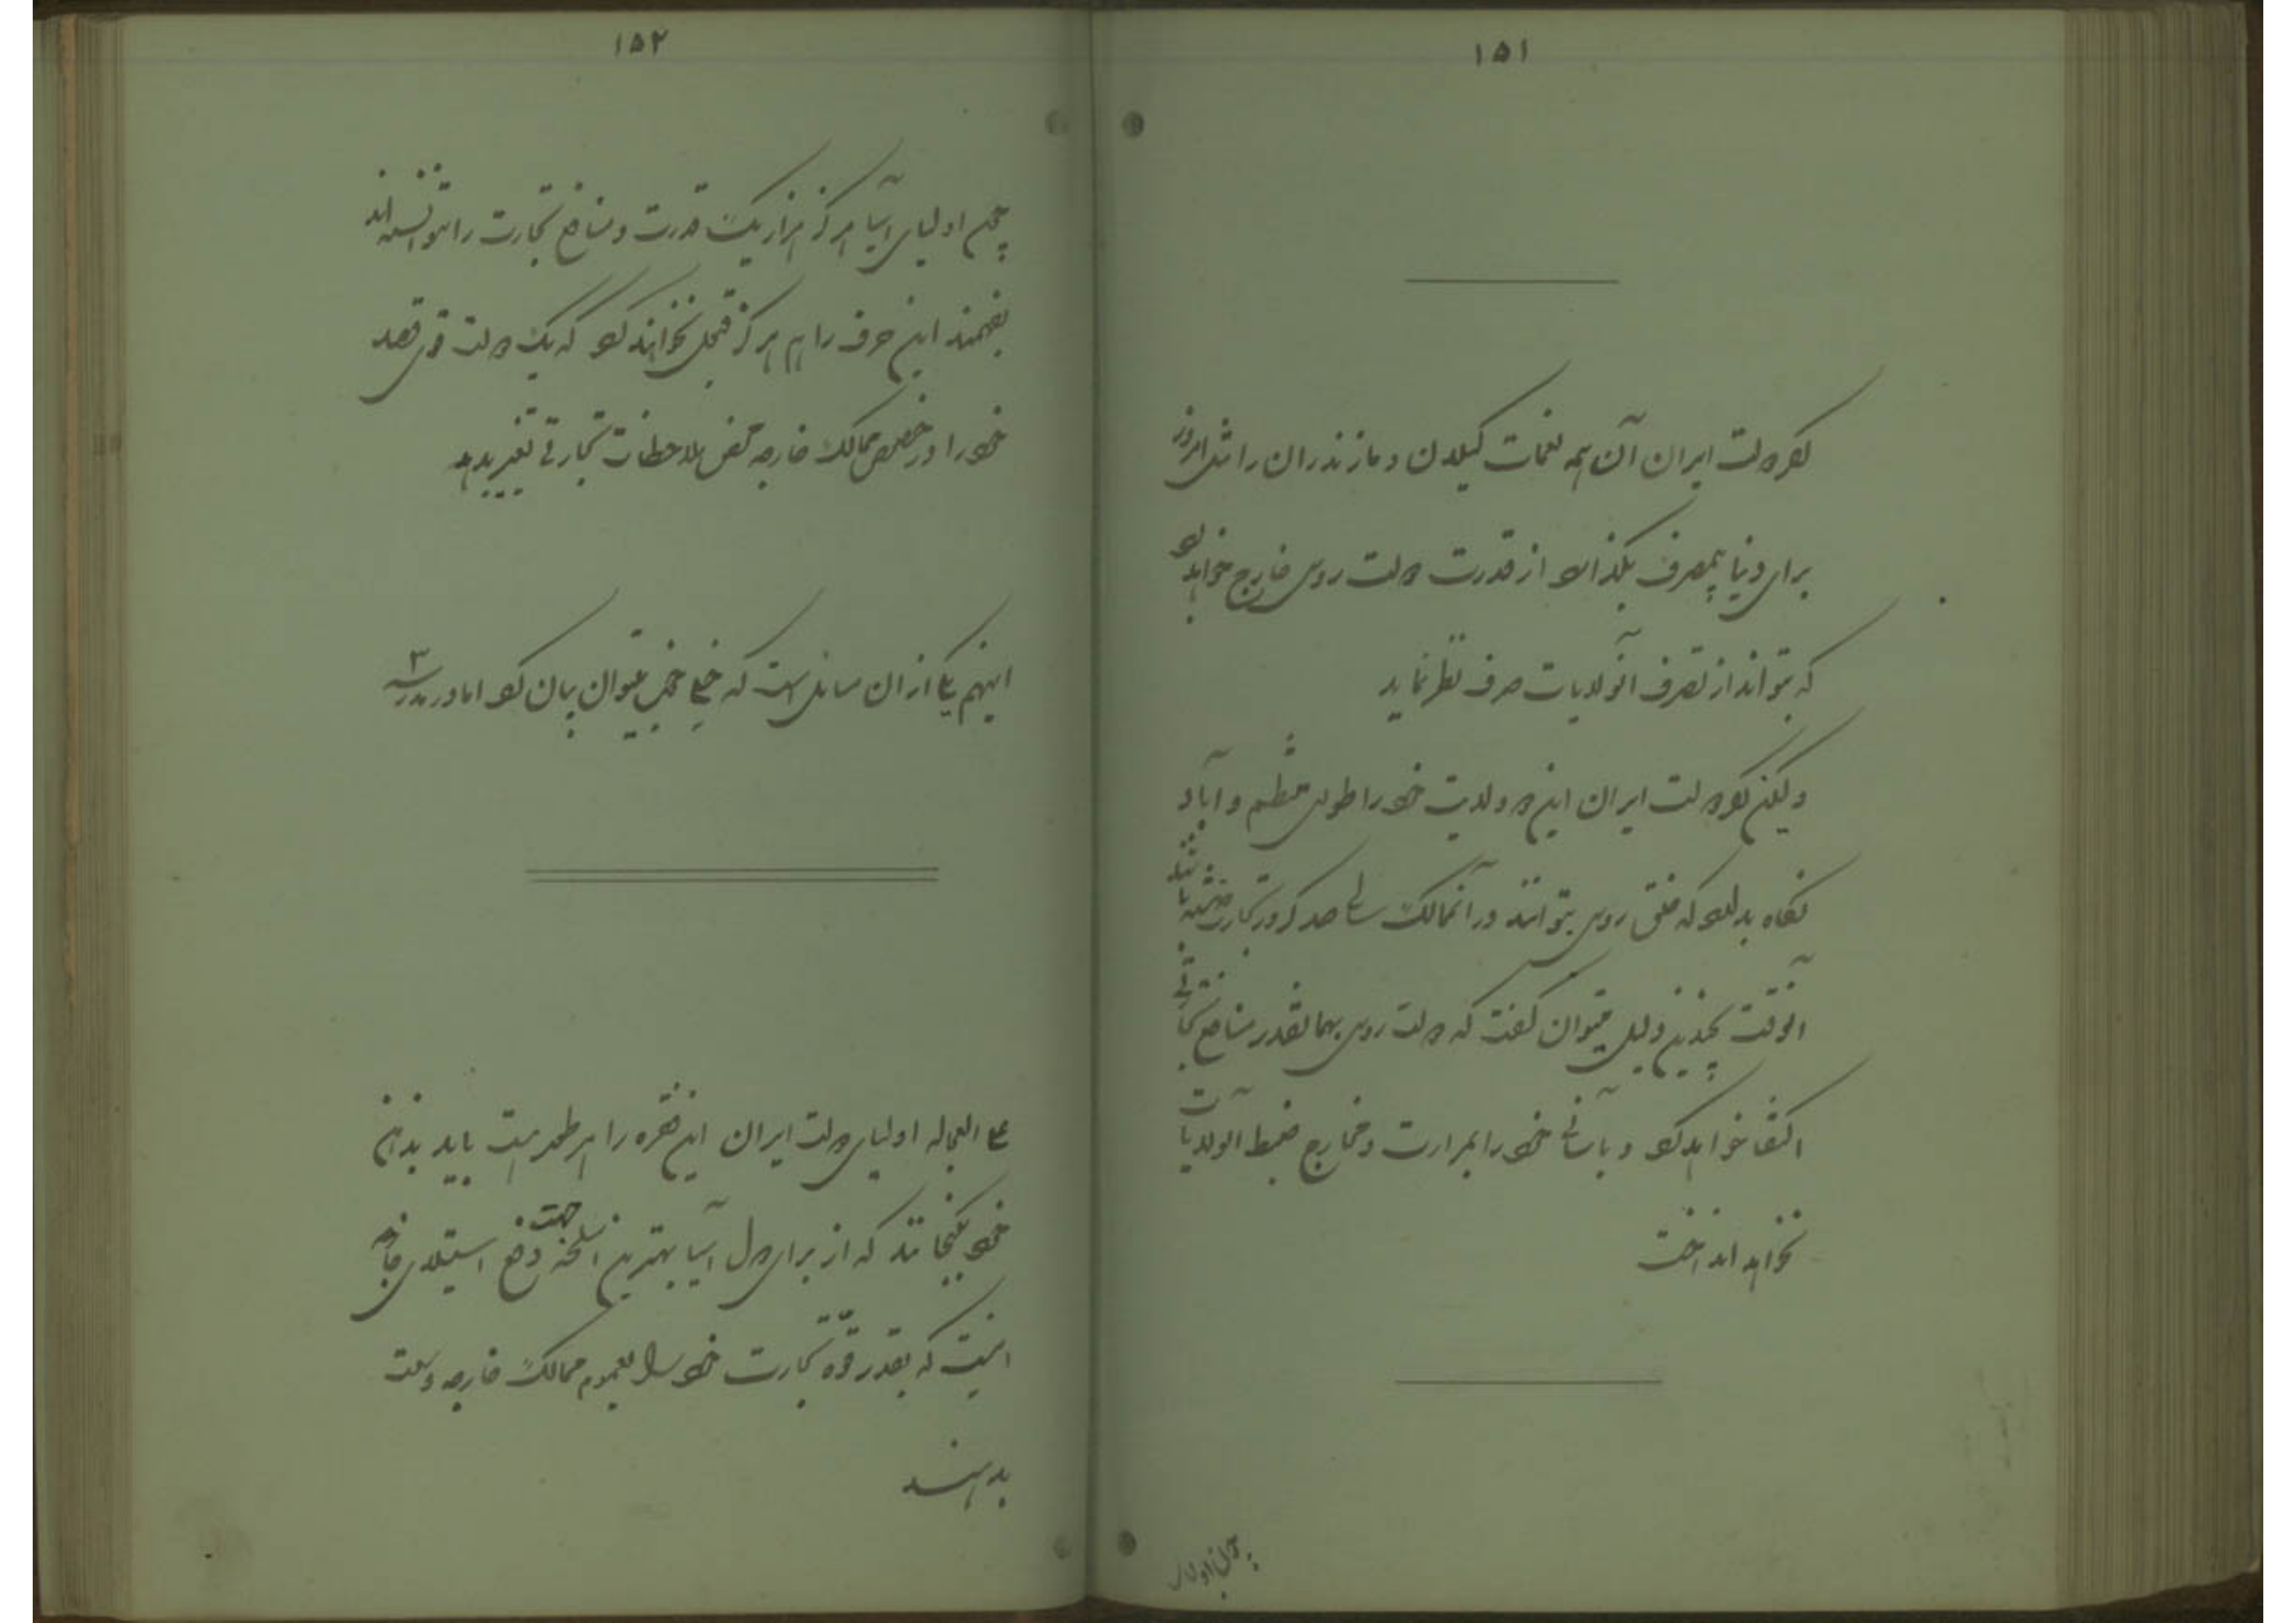 ۱۵۱
اگر دولت ایران آن همه نعمات گیلان و مازندران را مثل امروز
برای دنیا بیمصرف بگذارد از قدرت دولت روس خارج خواهد بود
که بتواند از تصرف آنولایات صرف نظر نماید
ولیکن اگر دولت ایران این دو ولایت خود را طوری منظم و آباد
نگاه بدارد که خلق روس بتوانند در آنممالک سالی صد کرور تجارت داشته باشند
آنوقت بچندین دلیل میتوان گفت که دولت روس بهمانقدر منافع تجارتی
اکتفا خواهد کرد و بآسانی خود را بمرارت و مخارج ضبط آنولایات
نخواهد انداخت
چون اولیای
۱۵۲
چون اولیای آسیا هرگز هزار یک قدرت و منافع تجارت را نتوانسته‌اند
بفهمند این حرف را هم هرگز قبول نخواهند کرد که یک دولت قوی قصد
خود را در خصوص ممالک خارجه محض ملاحظات تجارتی تغییر بدهد
اینهم یکی از ان مسائل است که خیلی خوب میتوان بیان کرد اما در مدرسه
علی العجاله اولیای دولت ایران این فقره را بهر طور هست باید بذهن
خود بگنجانند که از برای دول آسیا بهترین اسلحه جهت دفع استیلای خارجه
اینست که بقدر قوه تجارت خود را بعموم ممالک خارجه وسعت
بدهند